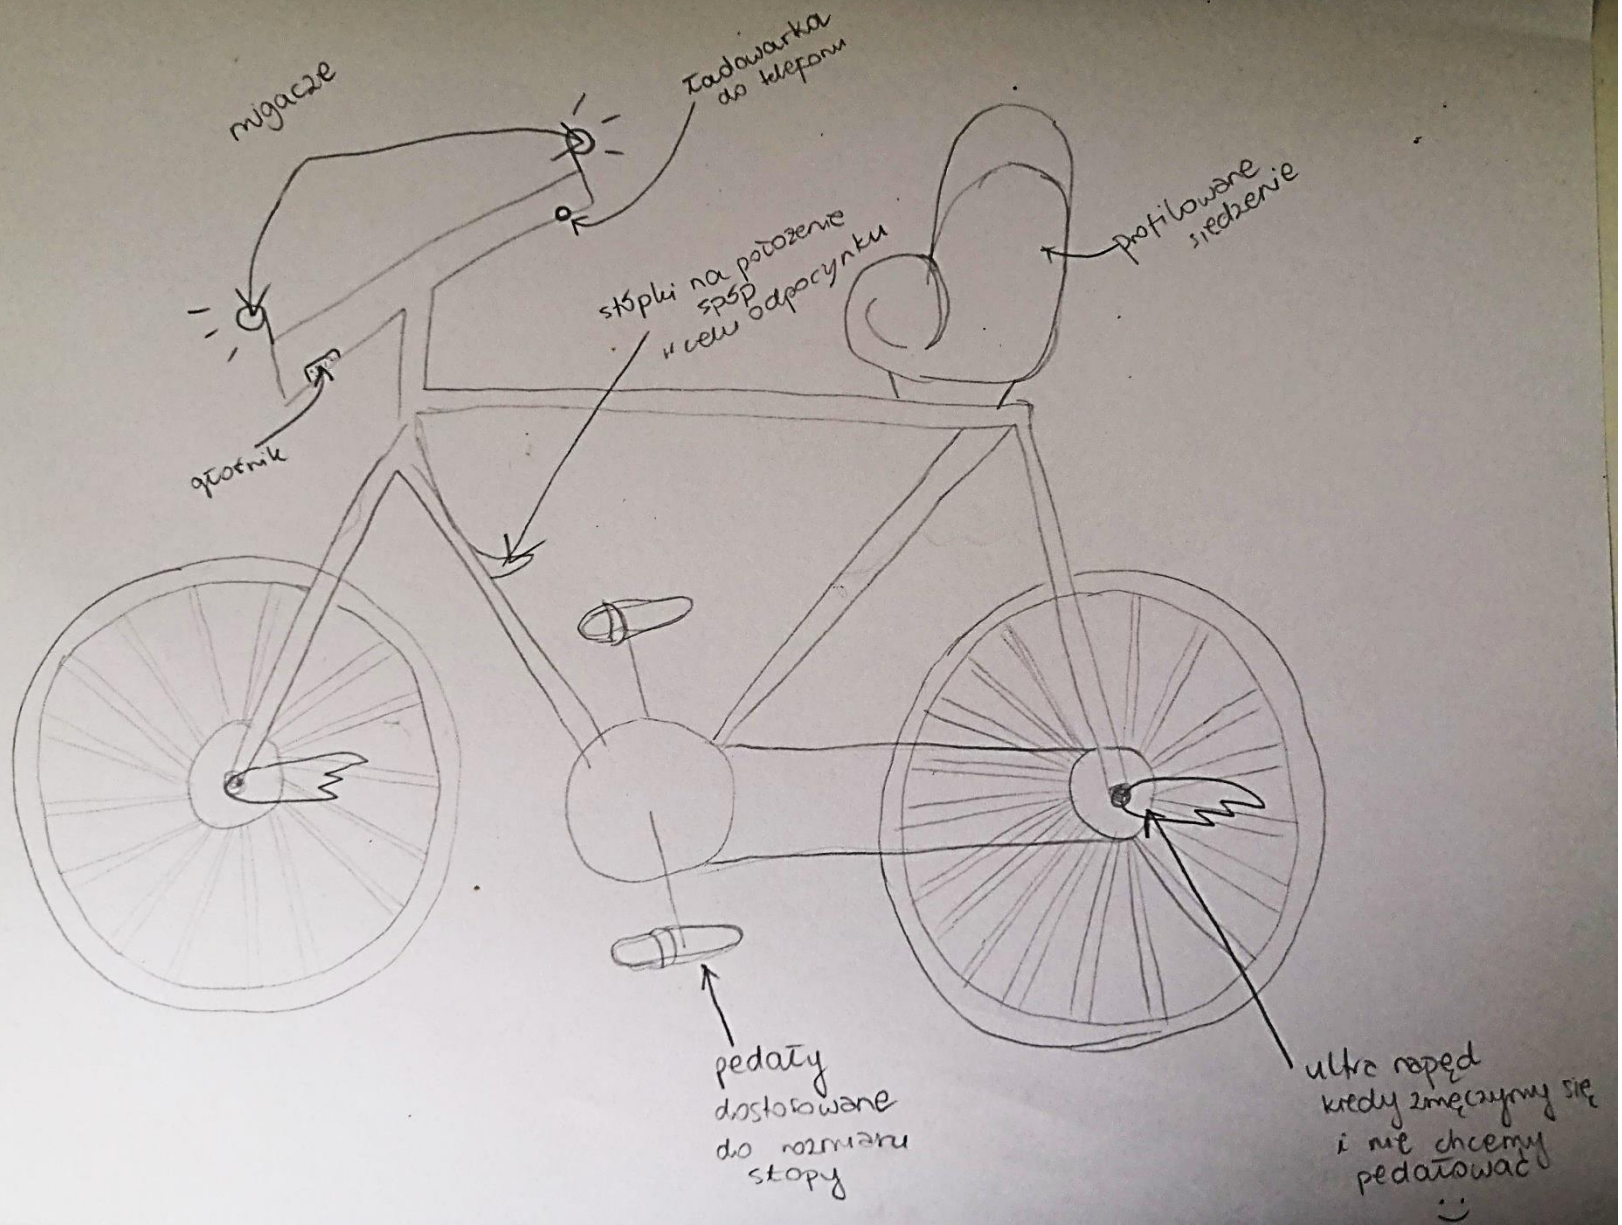 migacze
ładowarka
do telefonu
profilowane
siedzenie
stópki na położenie
spóp
w celu odpoczynku
głośnik
pedały
dostosowane
do rozmiaru
stopy
ultra napęd
kiedy zmęczymy się
i nie chcemy
pedałować
:)